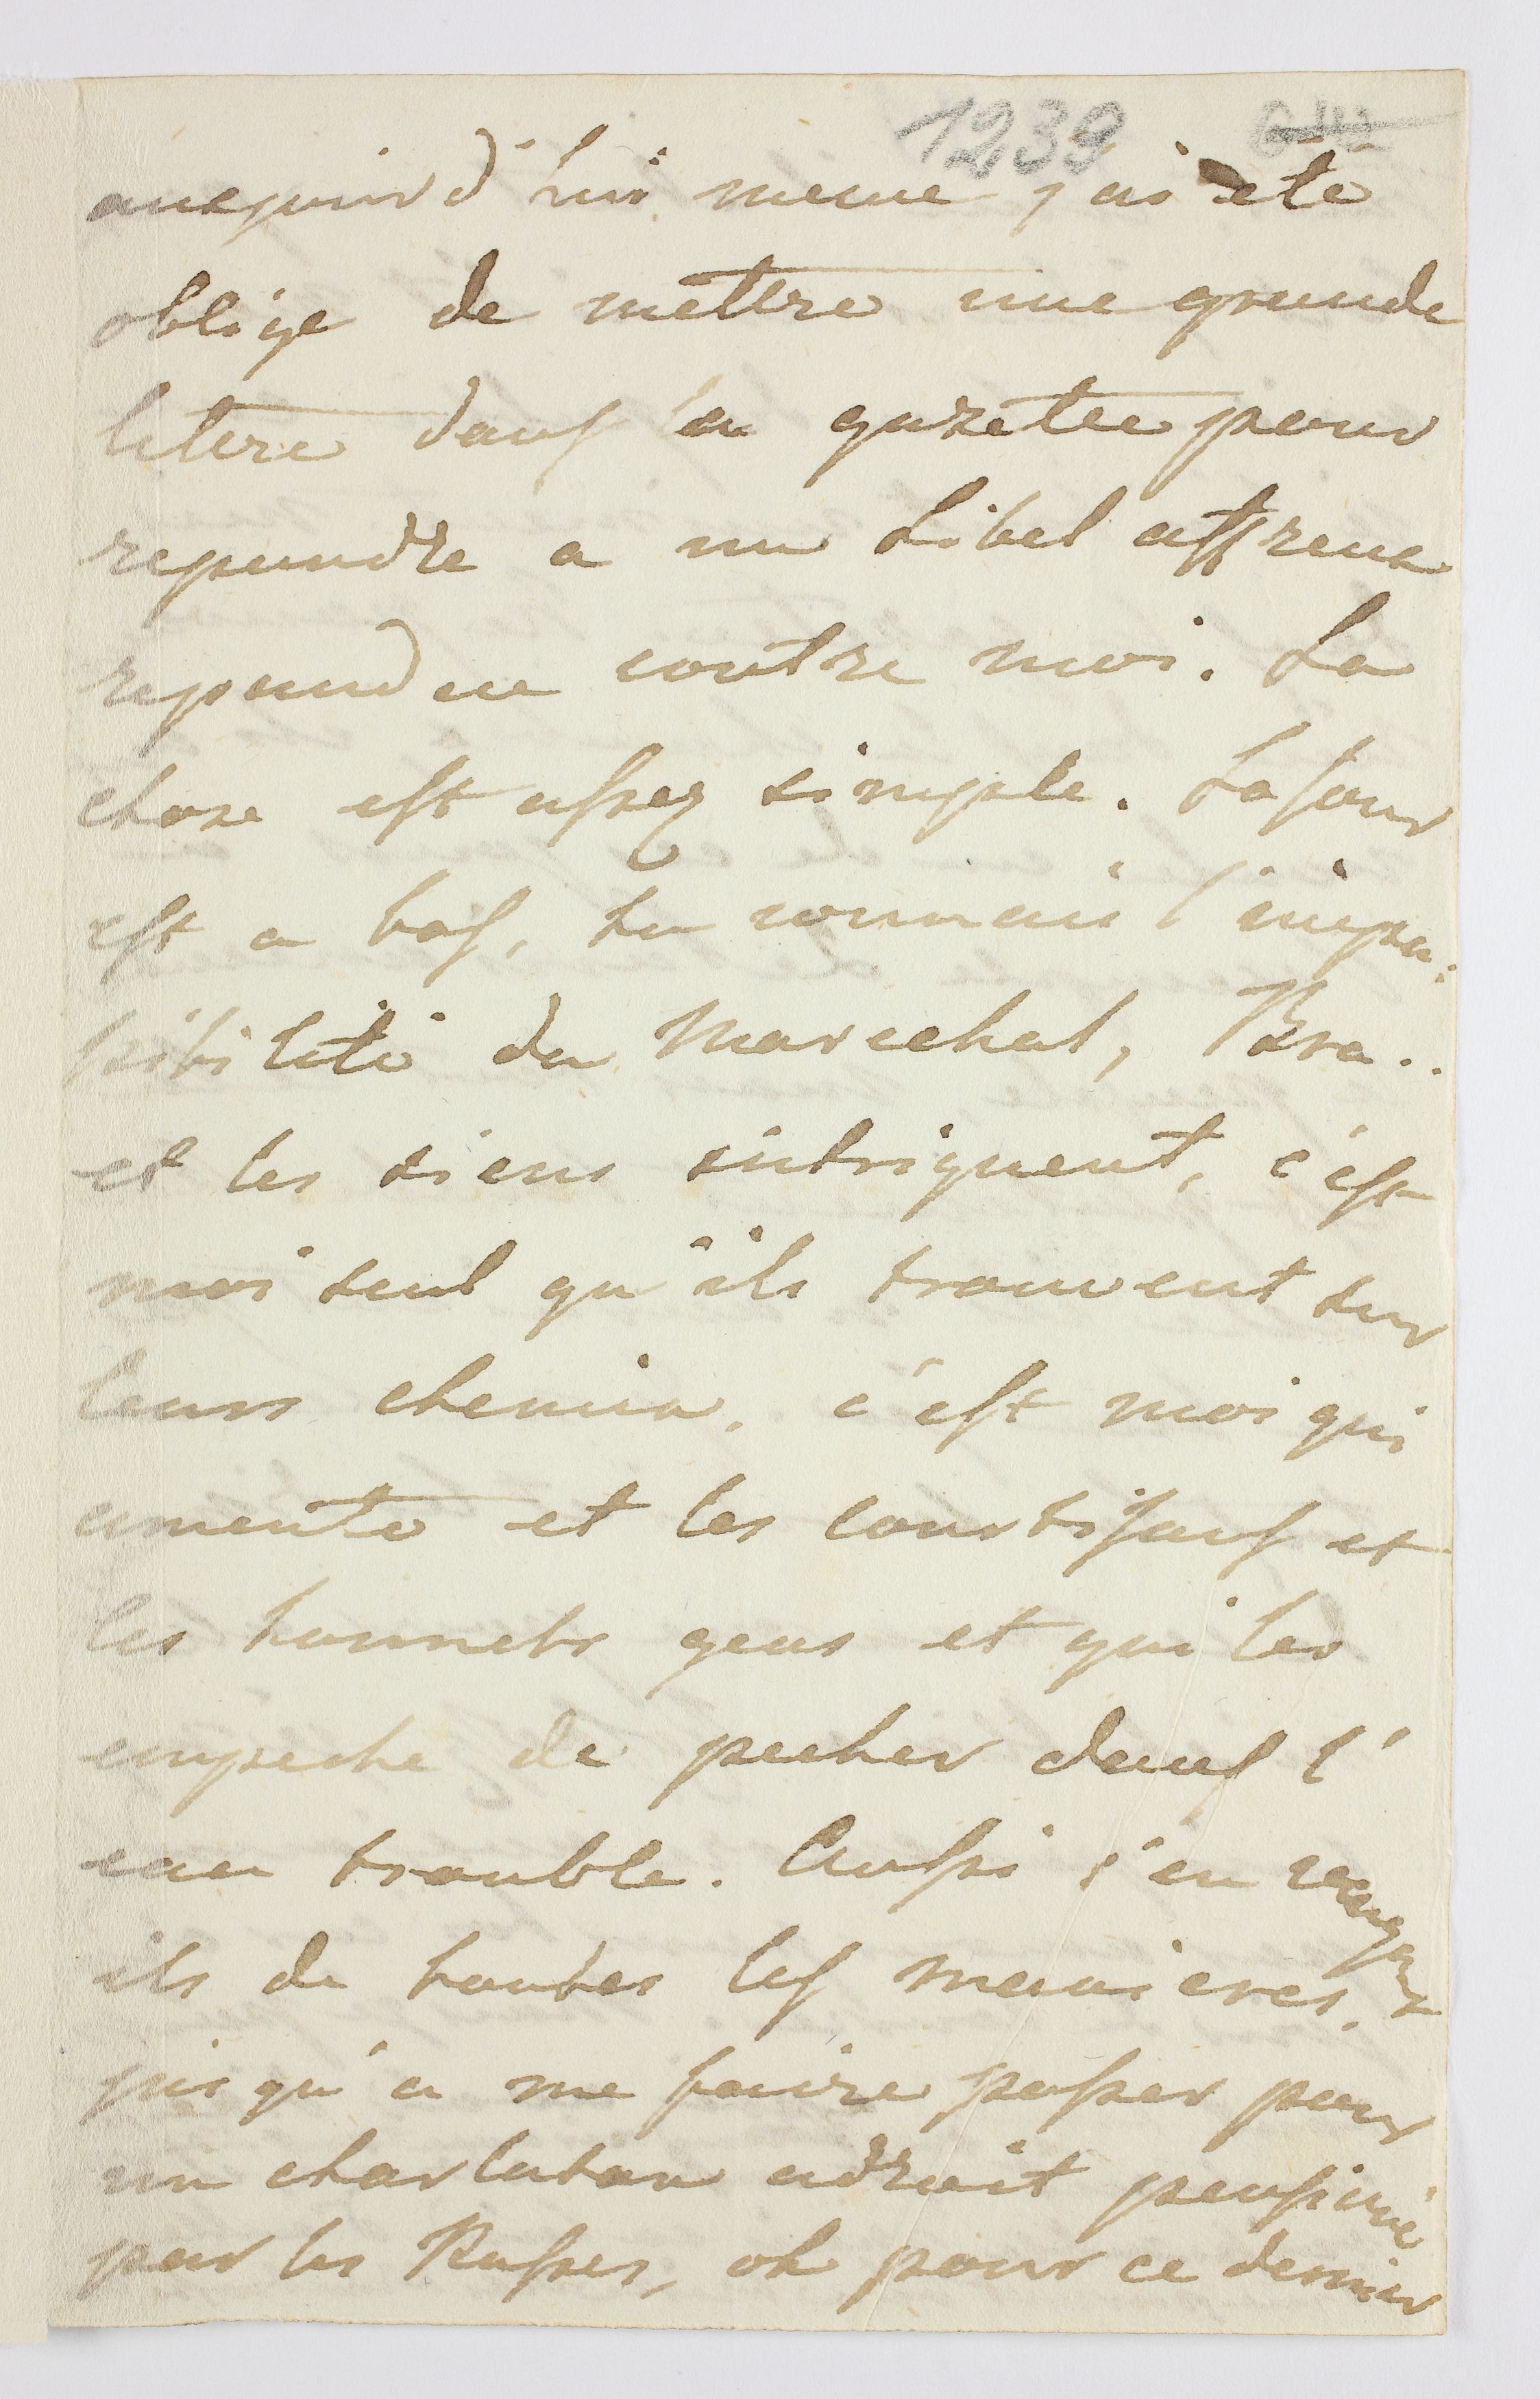 1239
aucjourd'hui meme j'ai été
obligé de mettre une grande
lettre dans la gazettee pour
repondre a un Libel affreux
repandue contre moi. La
chose est assez simple. Lasour
est a bas, tu connais l'impas:
sibilité du Marechal, Bra..
et les siens intriguent, c'est
moi seul qu'ils trouvent sur
leurs chemin, c'est moi qui
amente et les courtisans et
les honnets gens et qui les
empeche de pecher dans l'
eau trouble. Aussi s'en vengent
ils de toutes les manieres,
jusqu'a me faire passer pour
un charlatan adroit pensioné
par les Russes, oh pour ce dernier